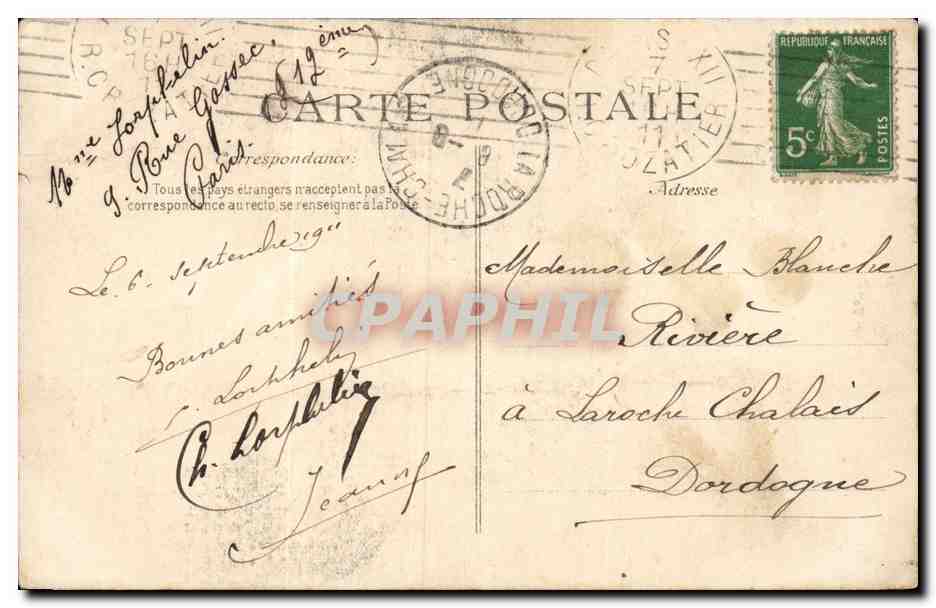 Mme Lorphelin.
9. Rue Gossec,
Paris. 12ème
CARTE POSTALE
Correspondance:
Tous les pays étrangers n'acceptent pas la
correspondance au recto, se renseigner à la Poste
Le 6. septembre 1911
Bonnes amitiés
Ch. Lorphelin
RÉPUBLIQUE FRANÇAISE
5c
POSTES
XII
SEPT
11
OZATIER
SEPT
LA ROCHE-CHALAIS
DORDOGNE
Adresse
Mademoiselle Blanche
Rivière
à Laroche Chalais
Dordogne
CPAPHIL